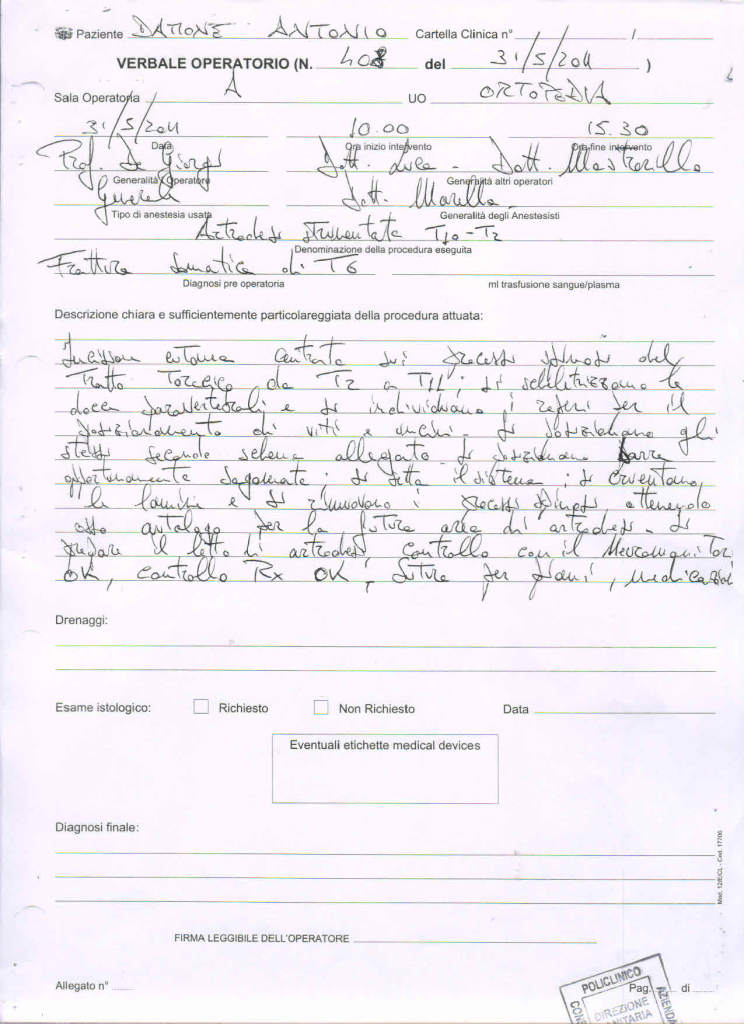 Paziente DATTONE ANTONIO Cartella Clinica n° /
VERBALE OPERATORIO (N. 408 del 31/5/2011 )
Sala Operatoria A UO ORTOPEDIA
31/5/2011 10.00 15.30
Data Ora inizio intervento Ora fine intervento
Prof. De Giorgi Dott. Luca - Dott. Mastrorillo
Generalità Operatore Generalità altri operatori
Generale Dott. Morella
Tipo di anestesia usata Generalità degli Anestesisti
Artrodesi strumentata T10-T2
Denominazione della procedura eseguita
Frattura somatica di T6
Diagnosi pre operatoria ml trasfusione sangue/plasma
Descrizione chiara e sufficientemente particolareggiata della procedura attuata:
Incisione cutanea centrata sui processi spinosi del
Tratto Toracico da T2 a T11; si scheletrizzano le
docce paravertebrali e si individuano i reperi per il
posizionamento di viti e uncini. Si posizionano gli
stessi secondo schema allegato. Si posizionano barre
opportunamente sagomate; si setta il sistema; si cruentano
le lamine e si rimuovono i processi spinosi ottenendo
osso autologo per la futura area di artrodesi. Si
prepara il letto di artrodesi, controllo con il Neuromonitor
OK, controllo Rx OK, sutura per piani, medicazioni
Drenaggi:
Esame istologico: Richiesto Non Richiesto Data
Eventuali etichette medical devices
Diagnosi finale:
Mod. 12/E/CL - Cod. 17706
FIRMA LEGGIBILE DELL'OPERATORE
Allegato n° Pag. di
POLICLINICO
AZIENDA
DIREZIONE
SANITARIA
CONS